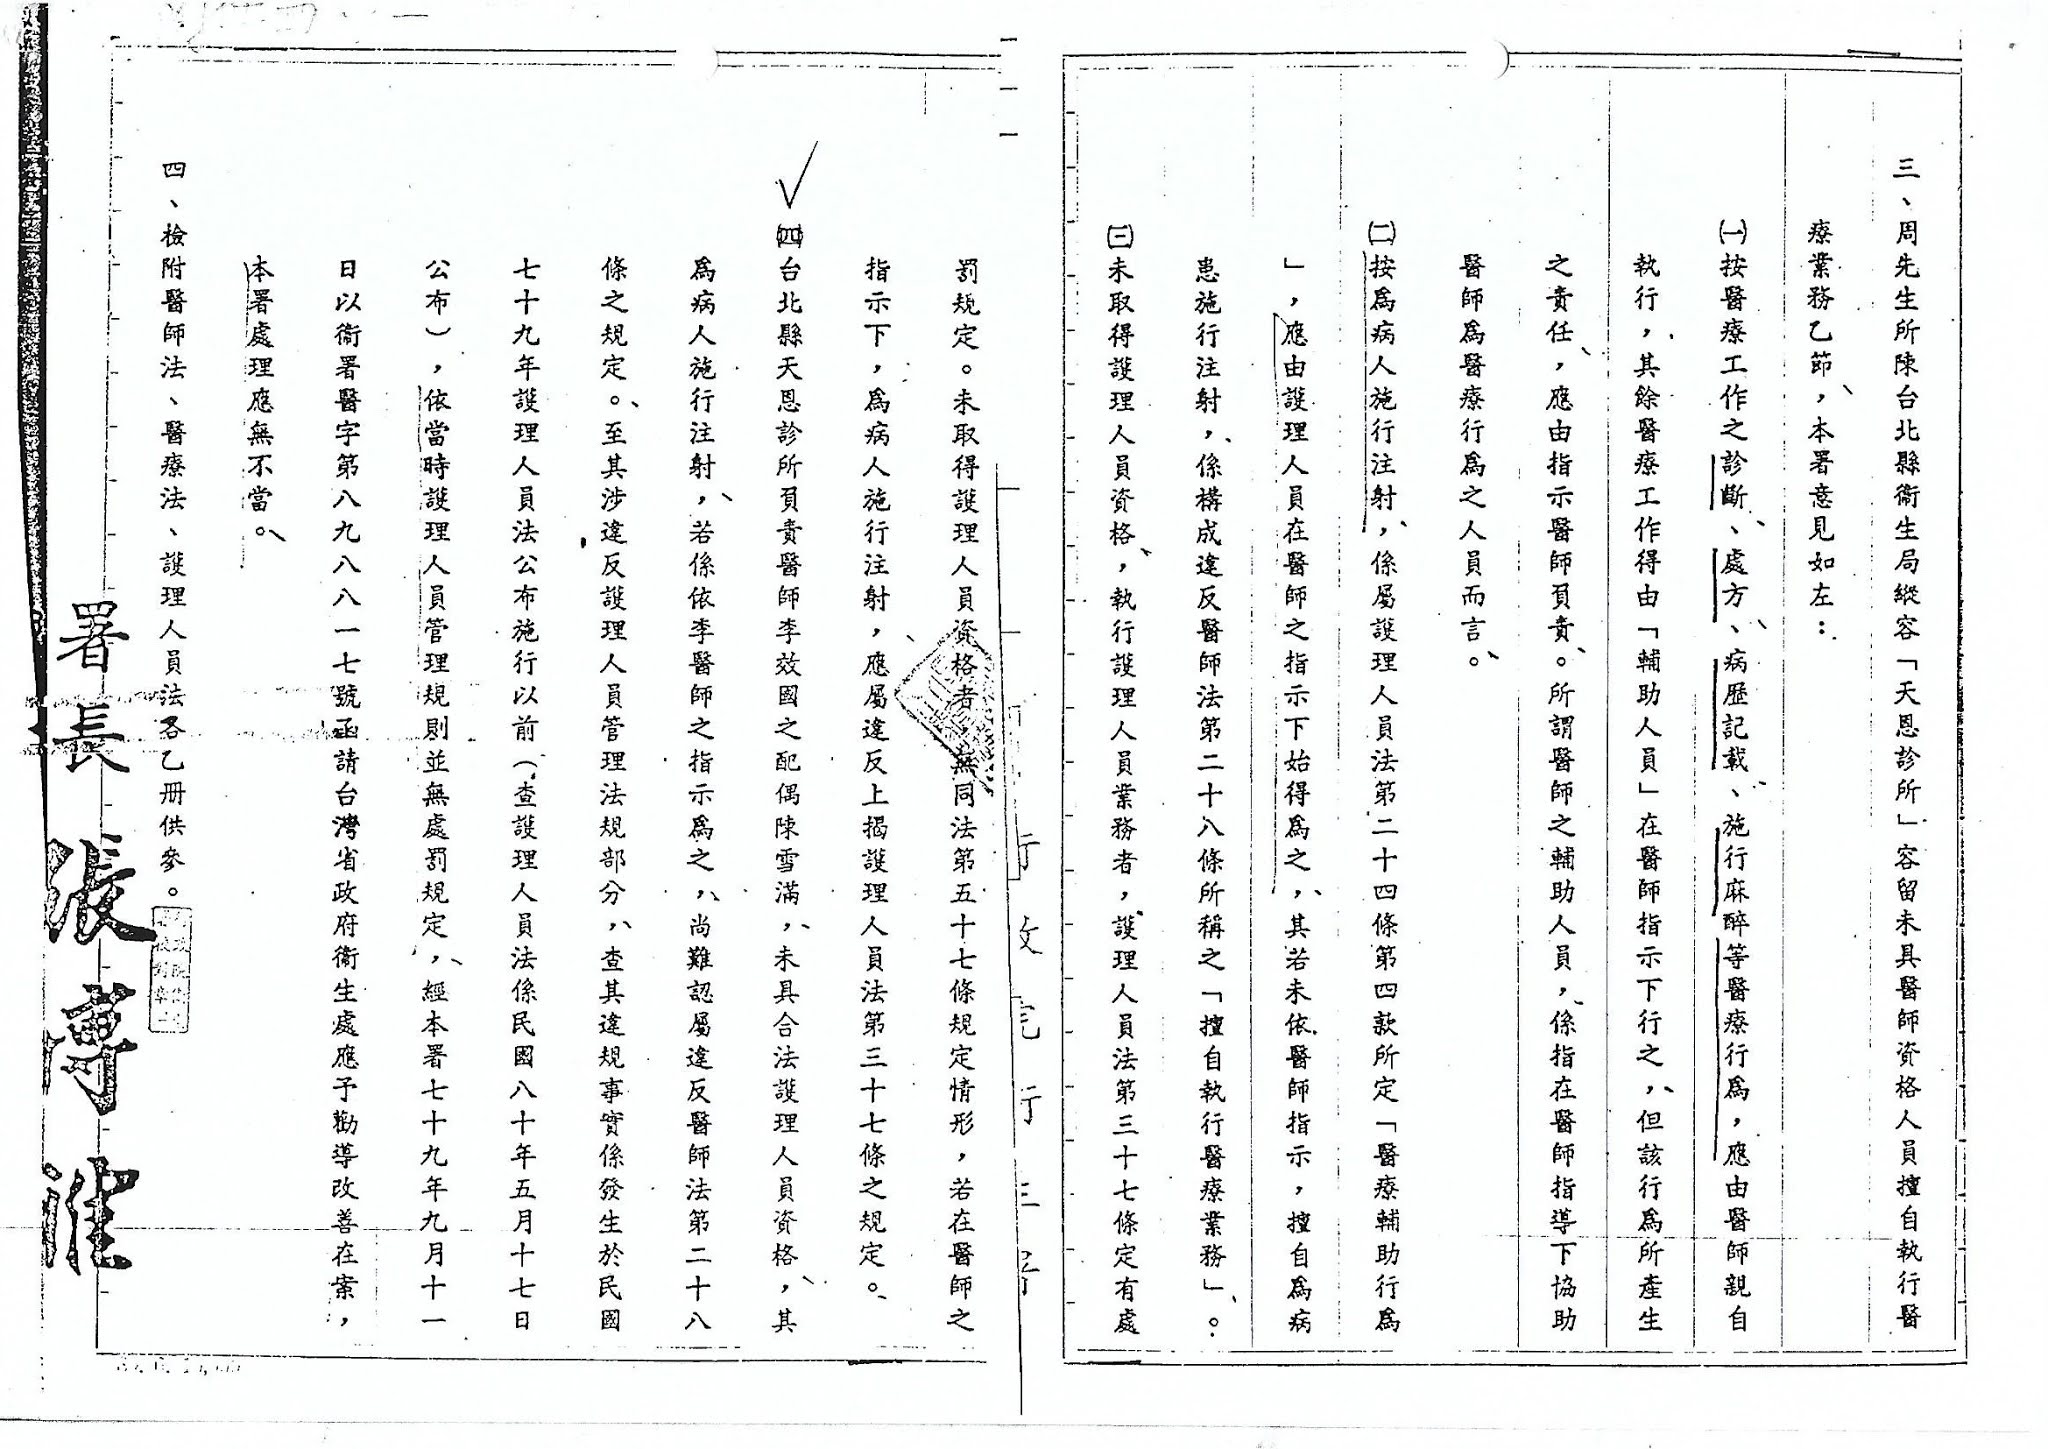 三、周先生所陳台北縣衞生局縱容「天恩診所」容留未具醫師資格人員擅自執行醫
療業務乙節，本署意見如左：
㈠按醫療工作之診斷、處方、病歷記載、施行麻醉等醫療行爲，應由醫師親自
執行，其餘醫療工作得由「輔助人員」在醫師指示下行之，但該行爲所產生
之責任，應由指示醫師負責。所謂醫師之輔助人員，係指在醫師指導下協助
醫師爲醫療行爲之人員而言。
㈡按爲病人施行注射，係屬護理人員法第二十四條第四款所定「醫療輔助行爲
」，應由護理人員在醫師之指示下始得爲之，其若未依醫師指示，擅自爲病
患施行注射，係構成違反醫師法第二十八條所稱之「擅自執行醫療業務」。
㈢未取得護理人員資格，執行護理人員業務者，護理人員法第三十七條定有處
罰規定。未取得護理人員資格者，無同法第五十七條規定情形，若在醫師之
指示下，爲病人施行注射，應屬違反上揭護理人員法第三十七條之規定。
㈣台北縣天恩診所負責醫師李效國之配偶陳雪滿，未具合法護理人員資格，其
爲病人施行注射，若係依李醫師之指示爲之，尚難認屬違反醫師法第二十八
條之規定。至其涉違反護理人員管理法規部分，查其違規事實係發生於民國
七十九年護理人員法公布施行以前（查護理人員法係民國八十年五月十七日
公布），依當時護理人員管理規則並無處罰規定，經本署七十九年九月十一
日以衞署醫字第八九八八一七號函請台灣省政府衞生處應予勸導改善在案，
本署處理應無不當。
四、檢附醫師法、醫療法、護理人員法各乙册供參。
署長張博雅